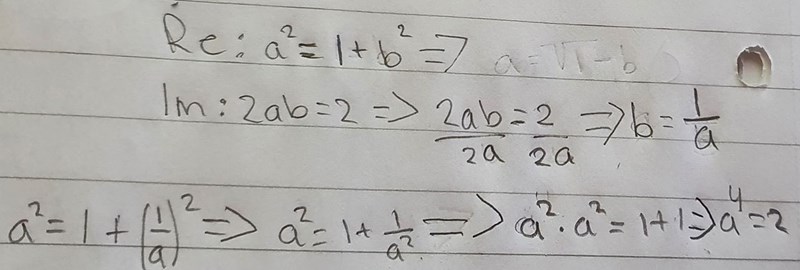 Re: a² = 1 + b² => a = √1 - b
Im: 2ab = 2 => 2ab/2a = 2/2a => b = 1/a
a² = 1 + (1/a)² => a² = 1 + 1/a² => a² · a² = 1 + 1 => a⁴ = 2